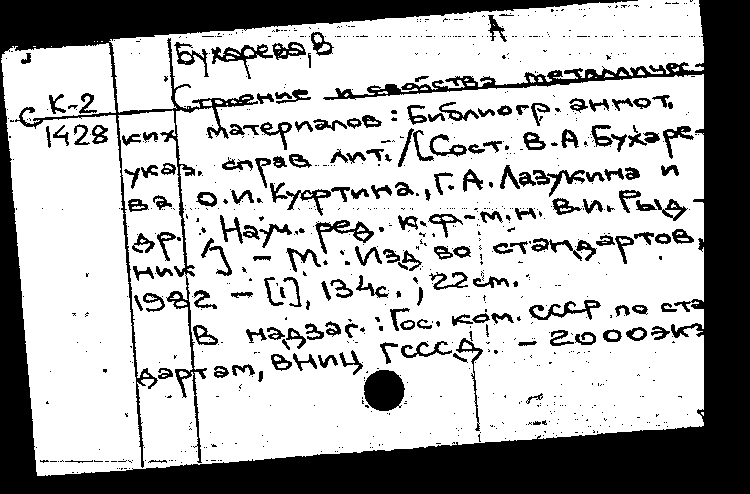 А
Бухарева, В
К-2
С 1428
Строение и свойства металличес-
ких материалов: Библиогр. аннот.
указ. справ лит. / [Сост. В.А. Бухаре-
ва О.И. Кусртина, Г.А. Лазукина и
др. : Науч. ред. к.ф-м.н. В.И. Рыд-
ник]. - М. : Изд во стандартов,
1982. - [1], 134с. ; 22 см.
В надзаг. : Гос. ком. СССР по ста
дартам, ВНИЦ ГСССД. - 2000экз